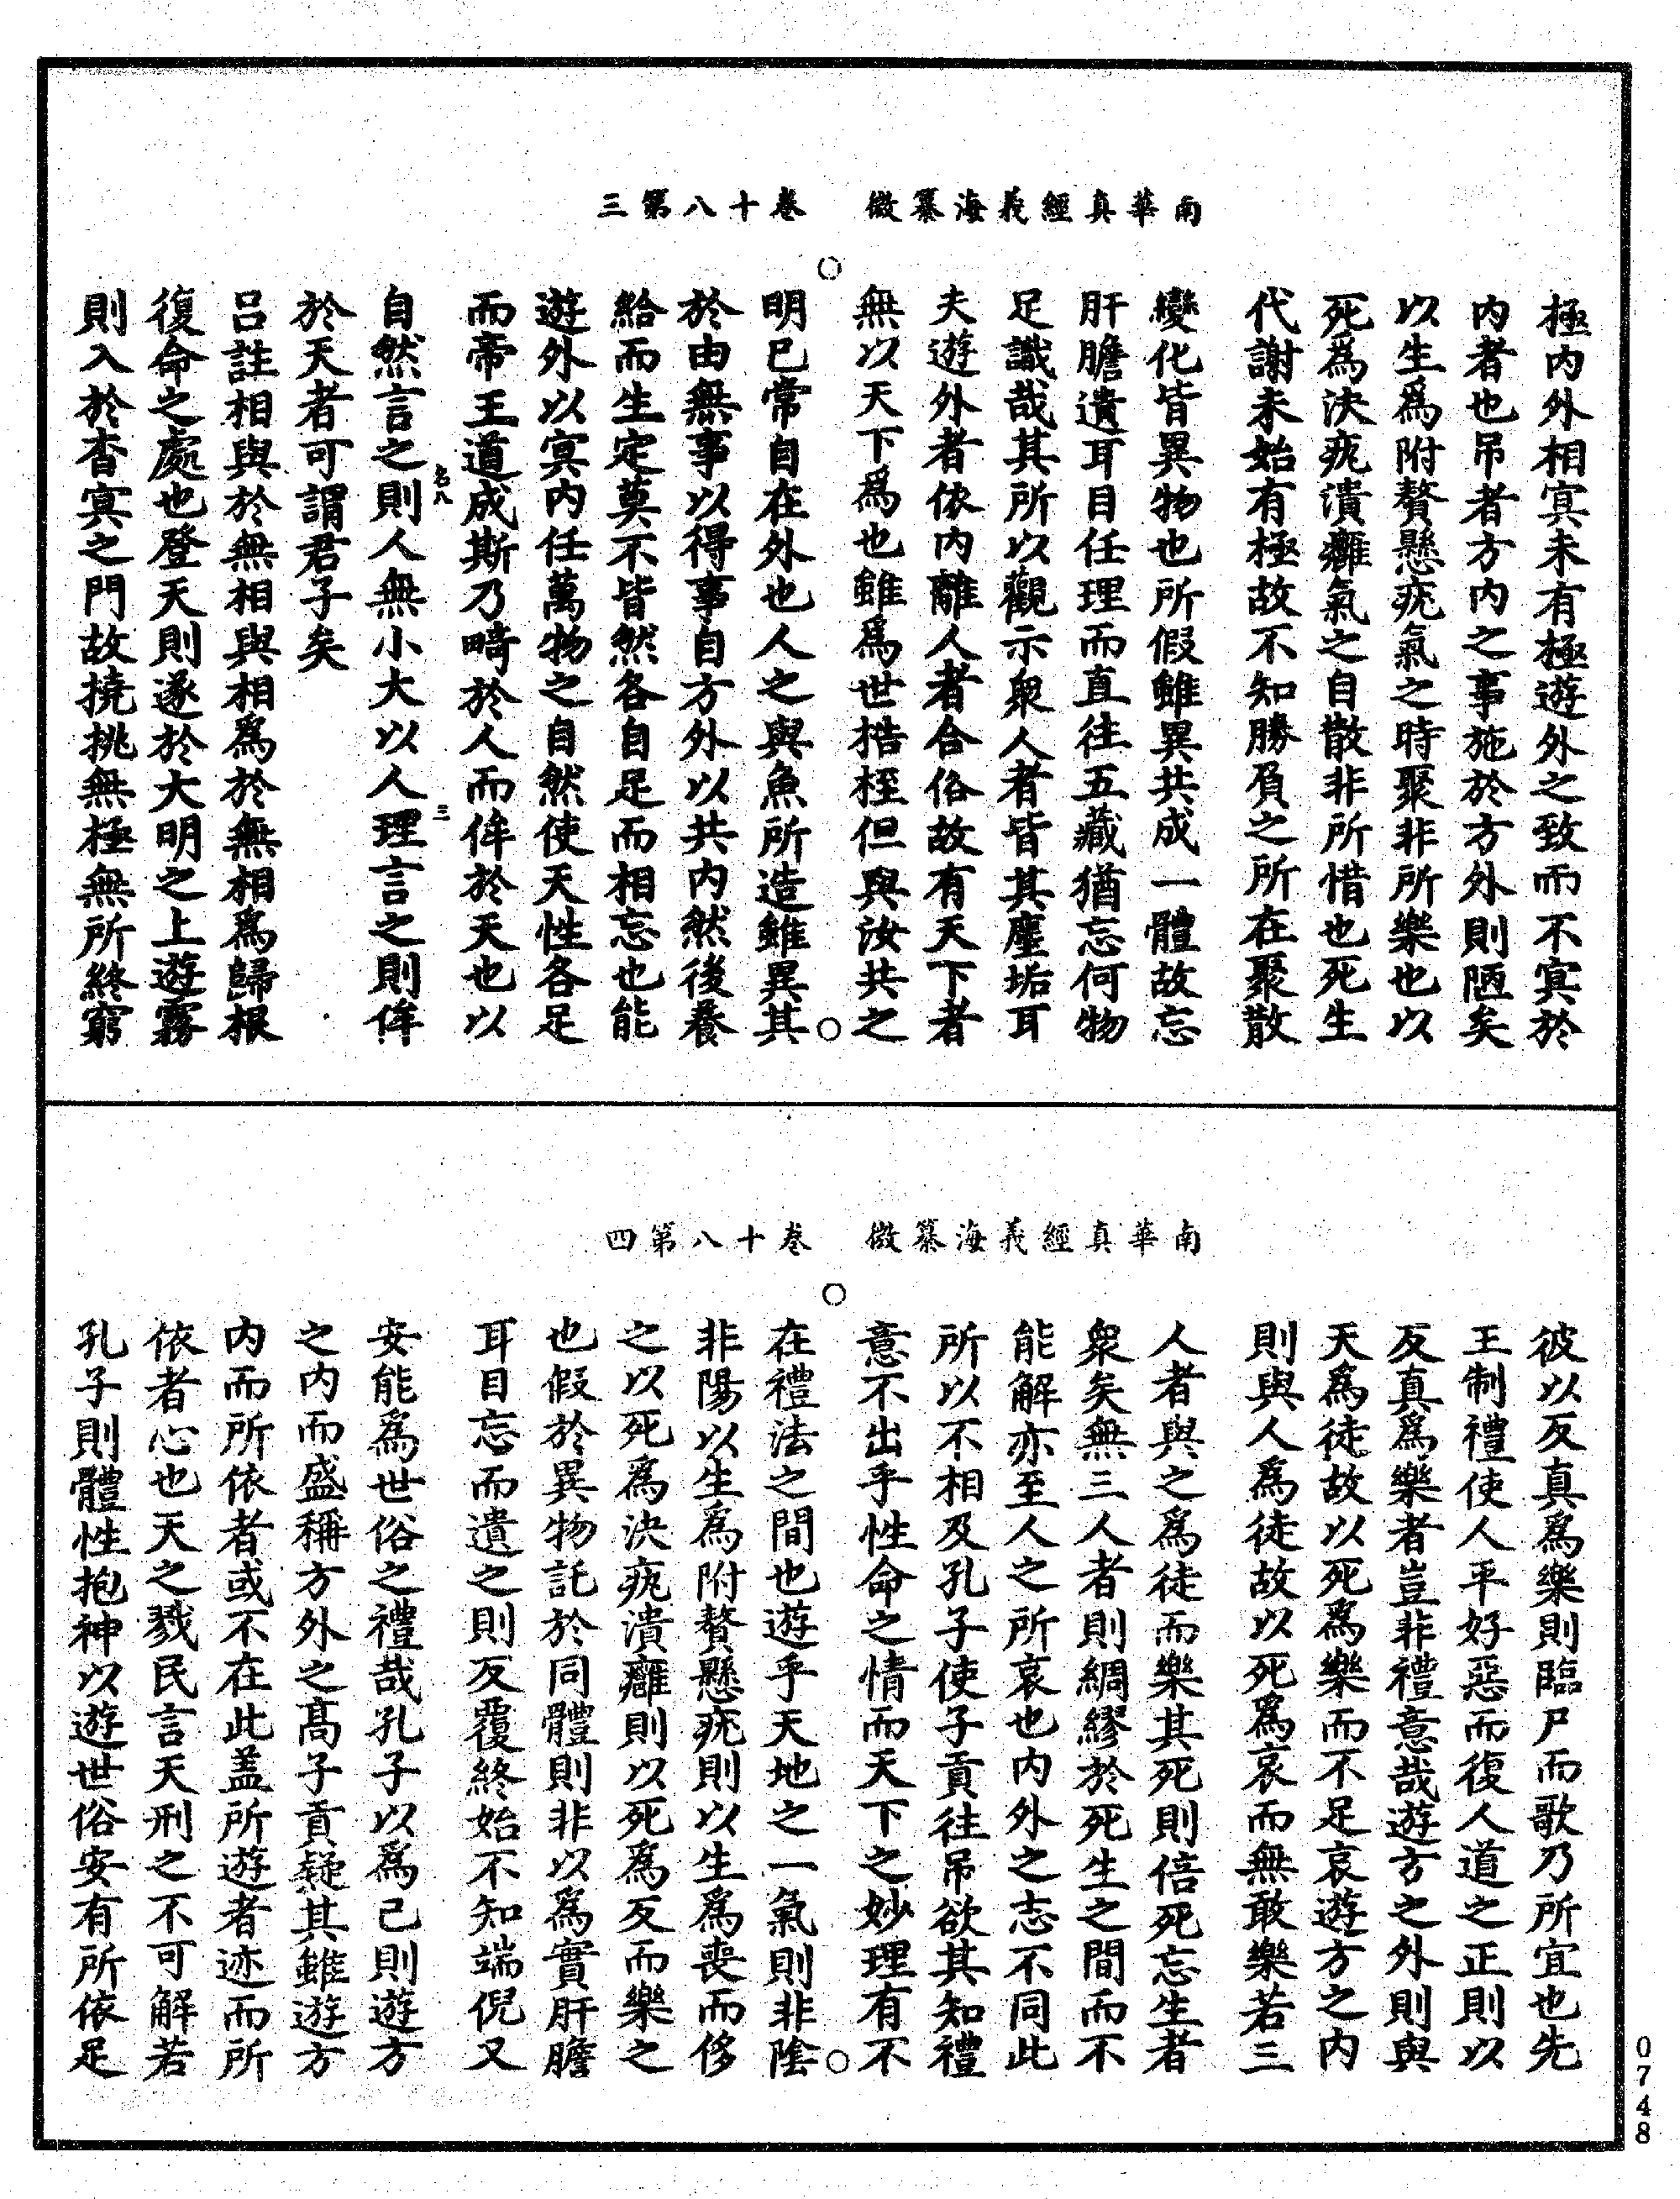 南華真經義海纂微　卷十八第三
極內外相㝠未有極遊外之致而不㝠於
內者也吊者方內之事施於方外則陋矣
以生爲附贅懸疣氣之時聚非所樂也以
死爲決疣潰癰氣之自散非所惜也死生
代謝未始有極故不知勝負之所在聚散
變化皆異物也所假雖異共成一體故忘
肝膽遺耳目任理而直往五藏猶忘何物
足識哉其所以觀示衆人者皆其塵垢耳
夫遊外者依內離人者合俗故有天下者
無以天下爲也雖爲世梏桎但與汝共之
明已常自在外也人之與魚所造雖異其
於由無事以得事自方外以共內然後養
給而生定莫不皆然各自足而相忘也能
遊外以㝠內任萬物之自然使天性各足
而帝王道成斯乃畸於人而侔於天也以
名八　三
自然言之則人無小大以人理言之則侔
於天者可謂君子矣
呂註相與於無相與相爲於無相爲歸根
復命之處也登天則遂於大明之上遊霧
則入於杳㝠之門故撓挑無極無所終窮
南華真經義海纂微　卷十八第四
彼以反真爲樂則臨尸而歌乃所宜也先
王制禮使人平好惡而復人道之正則以
反真爲樂者豈非禮意哉遊方之外則與
天爲徒故以死爲樂而不足哀遊方之內
則與人爲徒故以死爲哀而無敢樂若三
人者與之爲徒而樂其死則倍死忘生者
衆矣無三人者則綢繆於死生之間而不
能解亦至人之所哀也內外之志不同此
所以不相及孔子使子貢往吊欲其知禮
意不出乎性命之情而天下之妙理有不
在禮法之間也遊乎天地之一氣則非陰
非陽以生爲附贅懸疣則以生爲喪而侈
之以死爲決疣潰癰則以死爲反而樂之
也假於異物託於同體則非以爲實肝膽
耳目忘而遺之則反覆終始不知端倪又
安能爲世俗之禮哉孔子以爲己則遊方
之內而盛稱方外之高子貢疑其雖遊方
內而所依者或不在此盖所遊者迹而所
依者心也天之戮民言天刑之不可解若
孔子則體性抱神以遊世俗安有所依足
0748